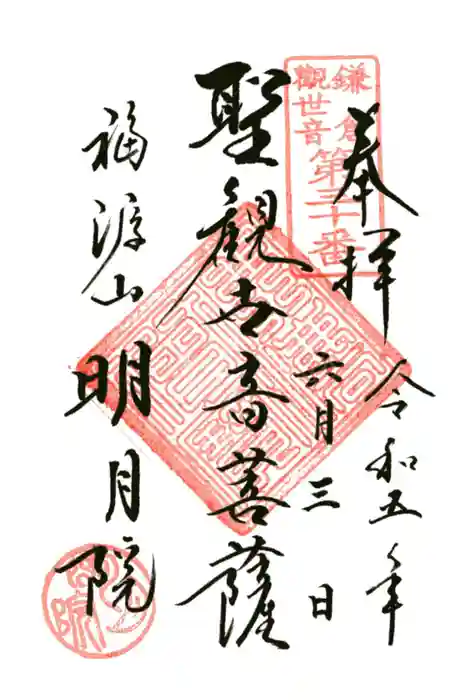 奉拝
令和五年
六月三日
鎌倉
觀世音
第三十番
聖観世音菩薩
福源山
明月院